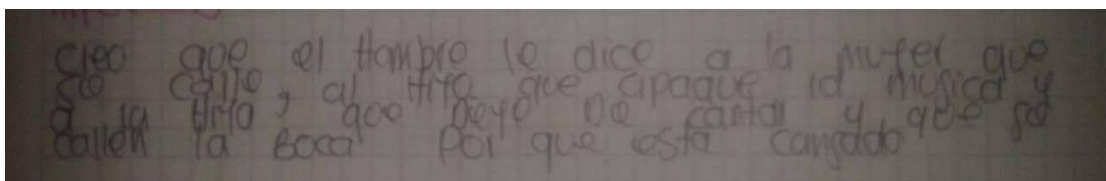 creo que el Hombre le dice a la mufer que
se calle, al Hifo que apague la musica y
a la Hifa, que Deye De cantar y que se
callen la Boca Por que esta cansado